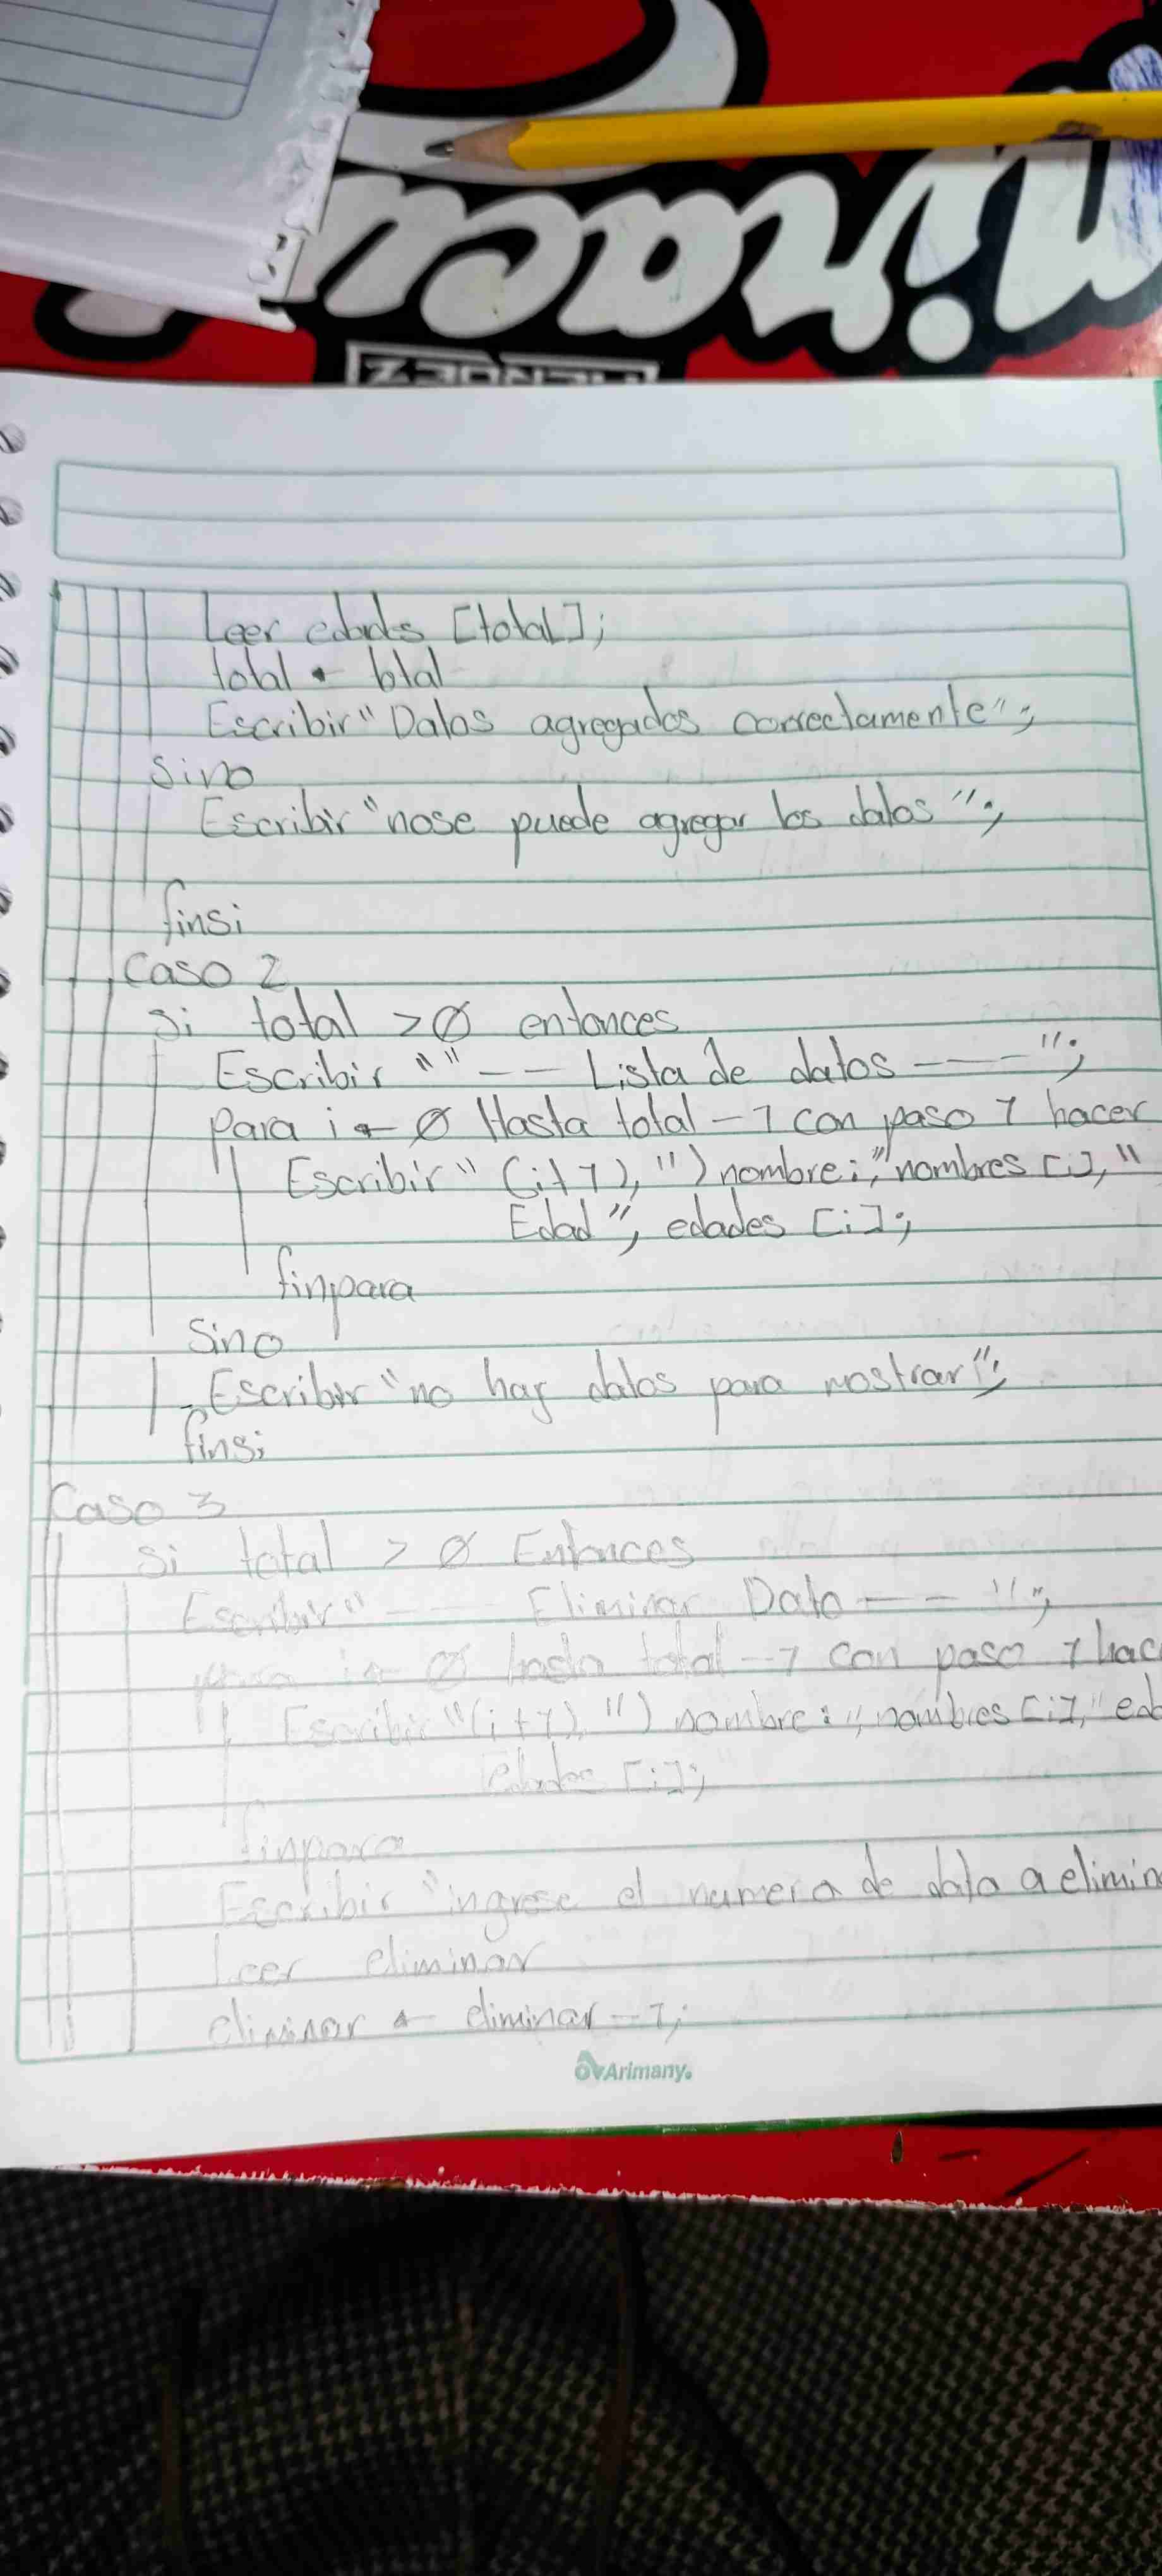 Leer edades [total];
total ← total
Escribir "Datos agregados correctamente";
Sino
Escribir "nose puede agregar los datos";
finsi
Caso 2
Si total > 0 entonces
Escribir "" -- Lista de datos ---";
Para i ← 0 Hasta total - 1 con paso 1 hacer
Escribir "(i+1), ") nombre:," nombres [i], "
Edad", edades [i];
finpara
Sino
Escribir "no hay datos para mostrar";
finsi
Caso 3
Si total > 0 Entonces
Escribir" --- Eliminar Dato -- ";
para i ← 0 hasta total - 1 con paso 1 hac
Escribir "(i+1), ") nombre: ", nombres [i], " ed
edades [i];
finpara
Escribir "ingrese el numero de dato a elimin
Leer eliminar
eliminar ← eliminar - 1;
Arimany.